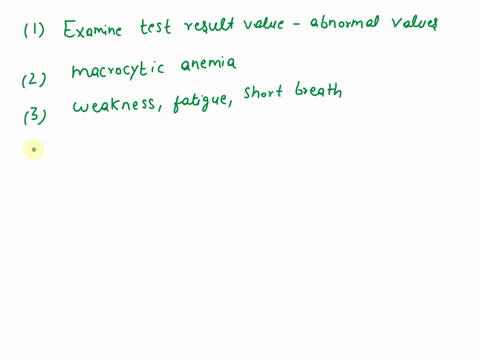 (1) Examine test result value - abnormal values
(2) macrocytic anemia
(3) weakness, fatigue, short breath